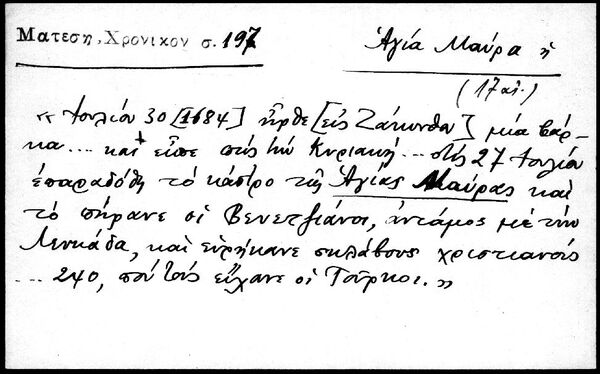 Ματεση, Χρονικον σ. 197
Ἁγία Μαύρα ἡ
(17 αἰ.)
« Ἰουλίου 30 [1684] ἦρθε [εἰς Ζάκυνθο] μία βάρ-
κα ... καὶ εἶπε πὼς τὴν Κυριακὴ ... στὶς 27 Ἰουλίου
ἐπαραδόθη τὸ κάστρο τῆς Ἁγίας Μαύρας καὶ
τὸ πήρανε οἱ Βενετζιάνοι, ἀντάμως μὲ τὴν
Λευκάδα, καὶ εὑρήκανε σκλάβους χριστιανοὺς
... 240, ποὺ τοὺς εἴχανε οἱ Τοῦρκοι. »